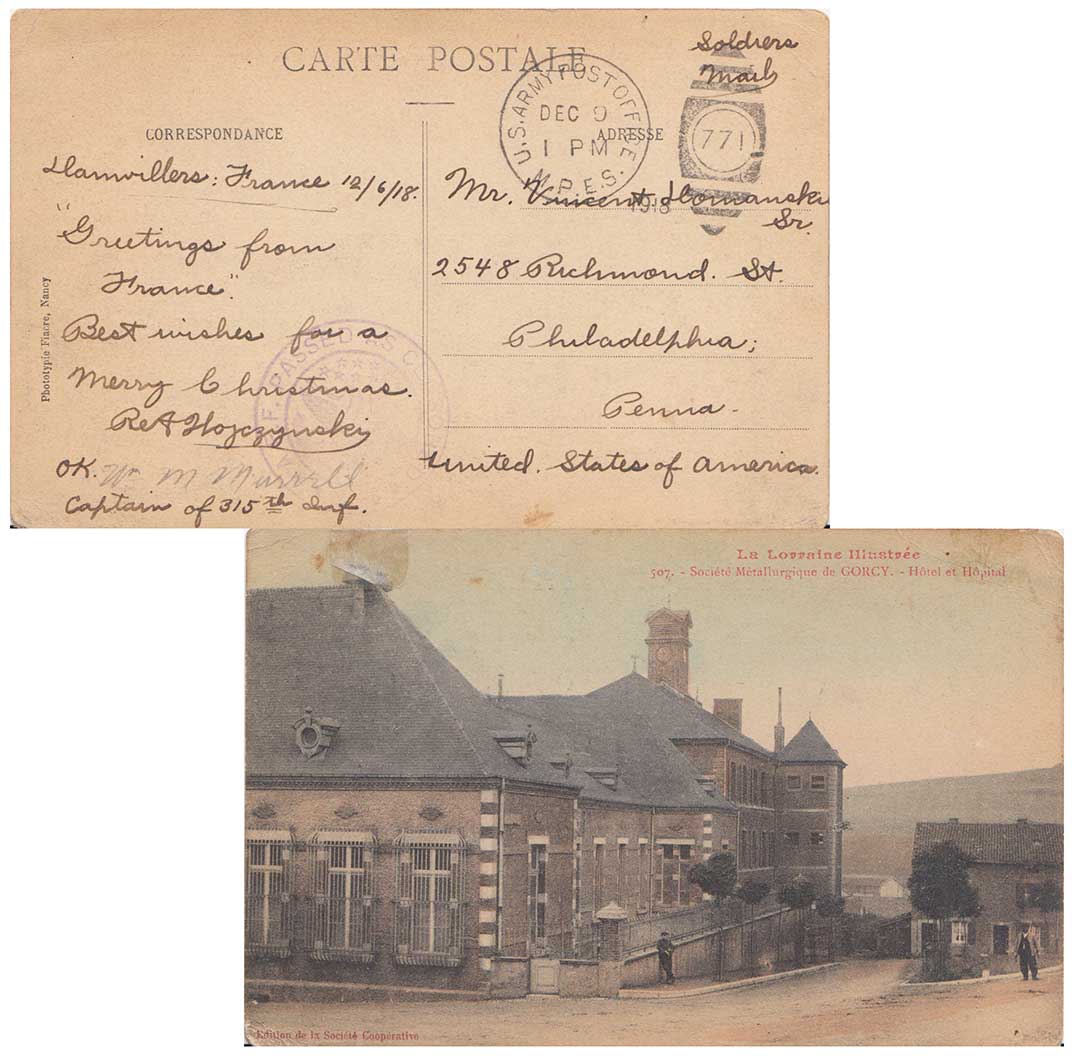 CARTE POSTALE
Soldiers
Mail
U.S. ARMY POST OFFICE
M.P.E.S.
DEC 9
1 PM
1918
771
CORRESPONDANCE
ADRESSE
Damvillers: France 12/6/18.
"Greetings from
France".
Best wishes for a
Merry Christmas.
OK. Wm M Murrell
Captain of 315th Inf.
PASSED AS
Phototypie Fiacre, Nancy
Mr. Vincent Domanski
Sr.
2548 Richmond. St.
Philadelphia;
Penna.
United. States of America.
La Lorraine Illustrée
507. - Société Métallurgique de GORCY. - Hôtel et Hôpital
Edition de la Société Coopérative